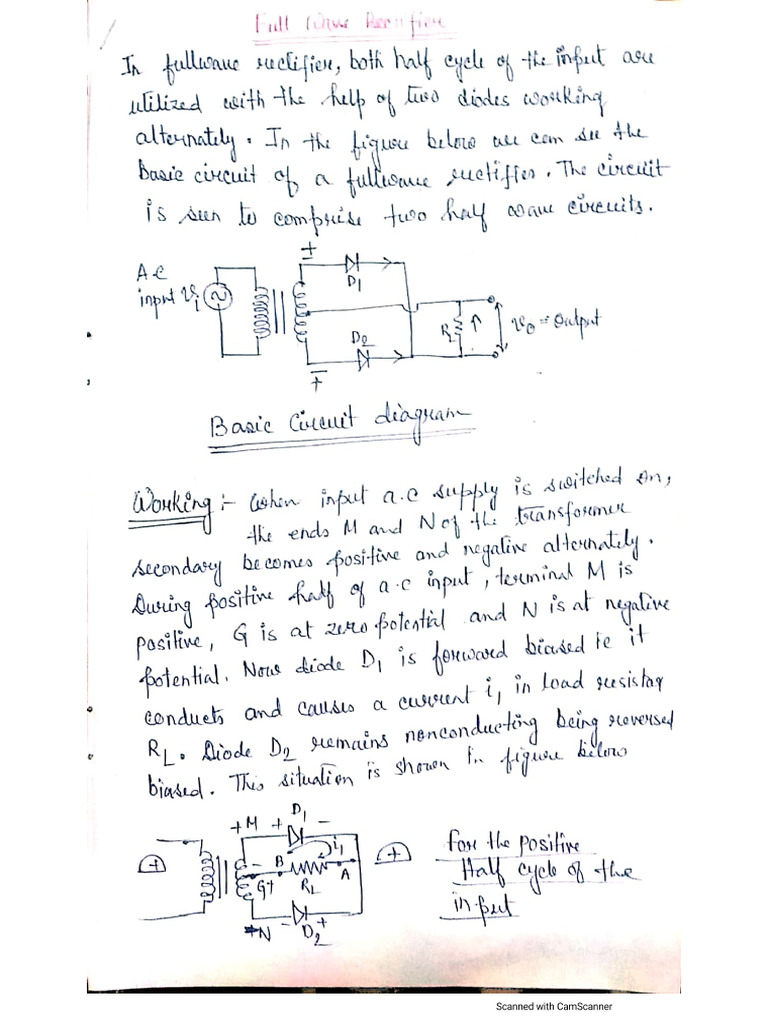 Full Wave Rectifier
In fullwave rectifier, both half cycle of the input are
utilized with the help of two diodes working
alternately. In the figure below we can see the
Basic circuit of a fullwave rectifier. The circuit
is seen to comprise two half wave circuits.
A.C
input Vi
±
D1
D2
∓
RL
vo = output
Basic Circuit diagram
Working :- when input a.c supply is switched on,
the ends M and N of the transformer
secondary becomes positive and negative alternately.
During positive half of a.c input, terminal M is
positive, G is at zero potential and N is at negative
potential. Now diode D1 is forward biased ie it
conducts and causes a current i1 in load resistor
RL. Diode D2 remains nonconducting being reversed
biased. This situation is shown in figure below
+M + D1 -
i1
- B A
G+ RL
-N - D2 +
+
+
For the positive
Half cycle of the
input
Scanned with CamScanner